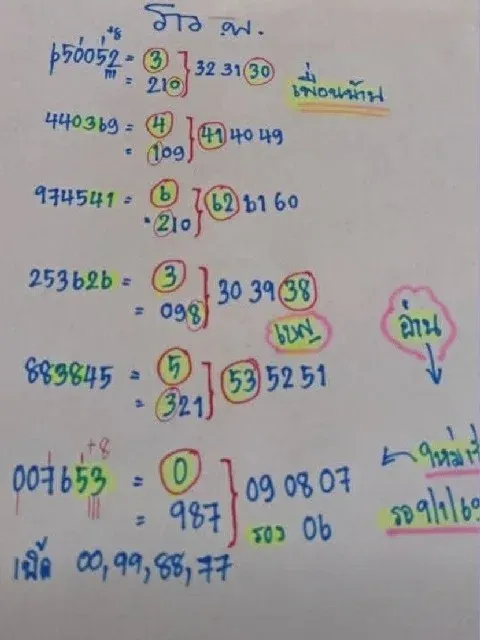 +8
650052 = 3 } 32 31 30
= 210
เพื่อนบ้าน
440369 = 4 } 41 40 49
= 109
974541 = 6 } 62 61 60
210
253626 = 3 } 30 39 38
= 098
เบญ
อ่าน
883845 = 5 } 53 52 51
= 321
+8
007653 = 0 } 09 08 07
= 987 รอง 06
ใหม่
รอ 9/1/69
เบิ้ล 00, 99, 88, 77